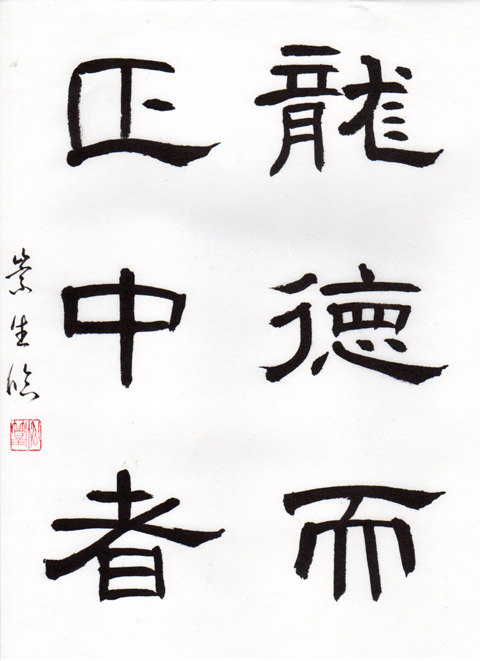 龍德而
正中者
崇生臨